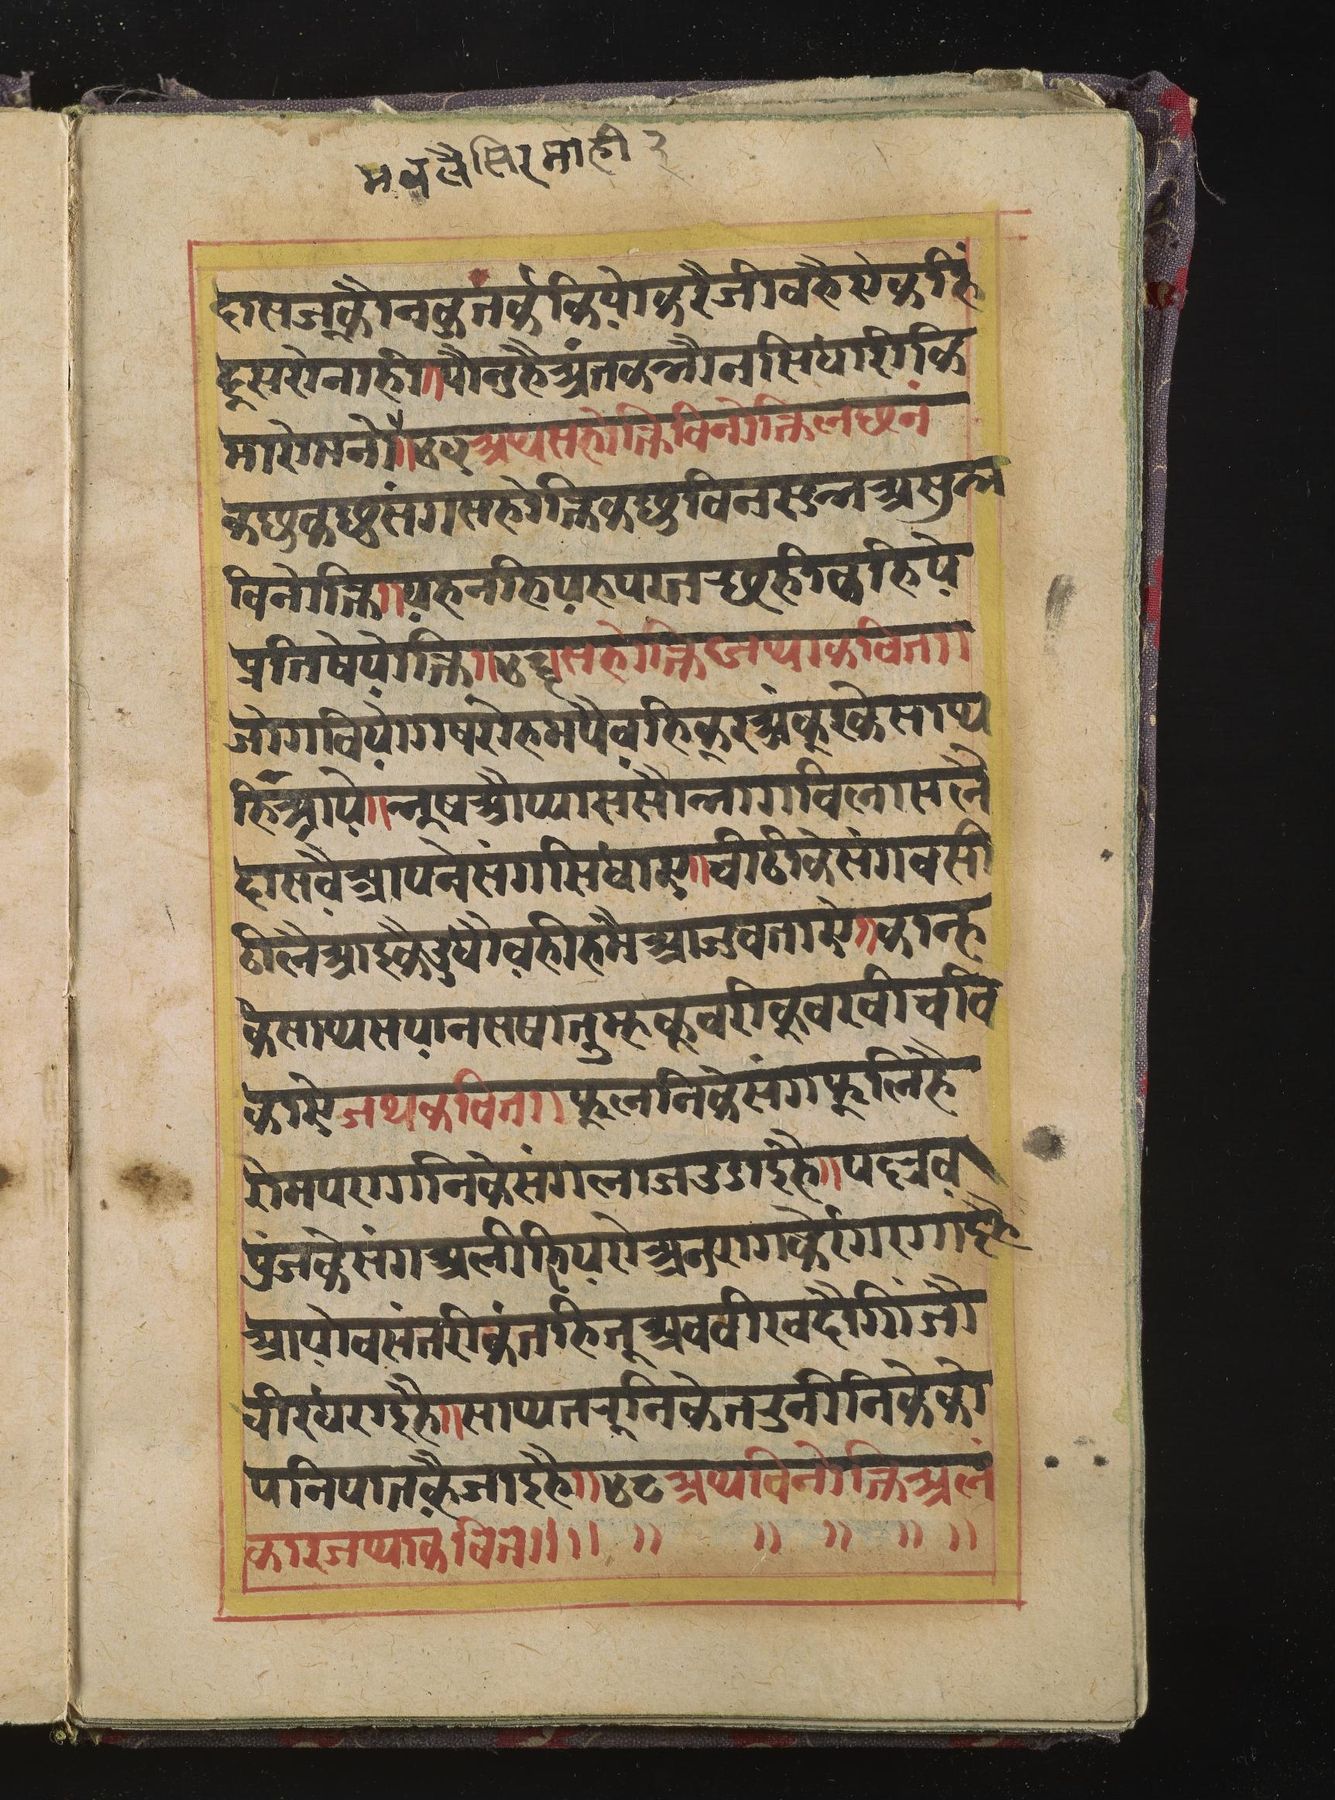 मवलैसिरमाही
दासजूकौनकुतर्ककियोकरैजीवहैएकहि
दूसरोनाही॥पौनुहैअंतकभौनसिधारीकि
मारेमनो॥४५अथसहोक्तिविनोक्तिलछनं
कछुकछुसंगसहोक्तिकछुविनसुभअसुभ
विनोक्ति॥यहनहियहपरतछहीकहिये
प्रतिषेधोक्ति॥४६सहोक्तिजथाकवित॥
जोगवियोगषरोहमपैवहिकूरअंकूरकेसाथ
हिंआये॥भूषऔप्याससौभोगविलासलै
दासवैआपनेसंगसिधाए॥चीठीकेसंगवसी
ठीलैआइकैउधौवहीहमैआजवताए॥कान्ह
केसाथसयानसषातुम्हकूवरीकूवरवीचवि
काए॥जथकवित॥फूलनिकेसंगफूलिहै
रोमपरागनिकेसंगलाजउडाइहै॥पल्लव
पुंजकेसंगअलीहियरोअनुरागकेरंगरगाइहै
आयोवसंतरीकंतहितूअववीरवदौंगीजौ
धीरधराइहै॥साथतरूनिकेतरुनीनिकेको
पनिपातकैजाइहै॥४८अथविनोक्तिअलं
कारजथाकवित॥॥ ॥ ॥ ॥ ॥ ॥